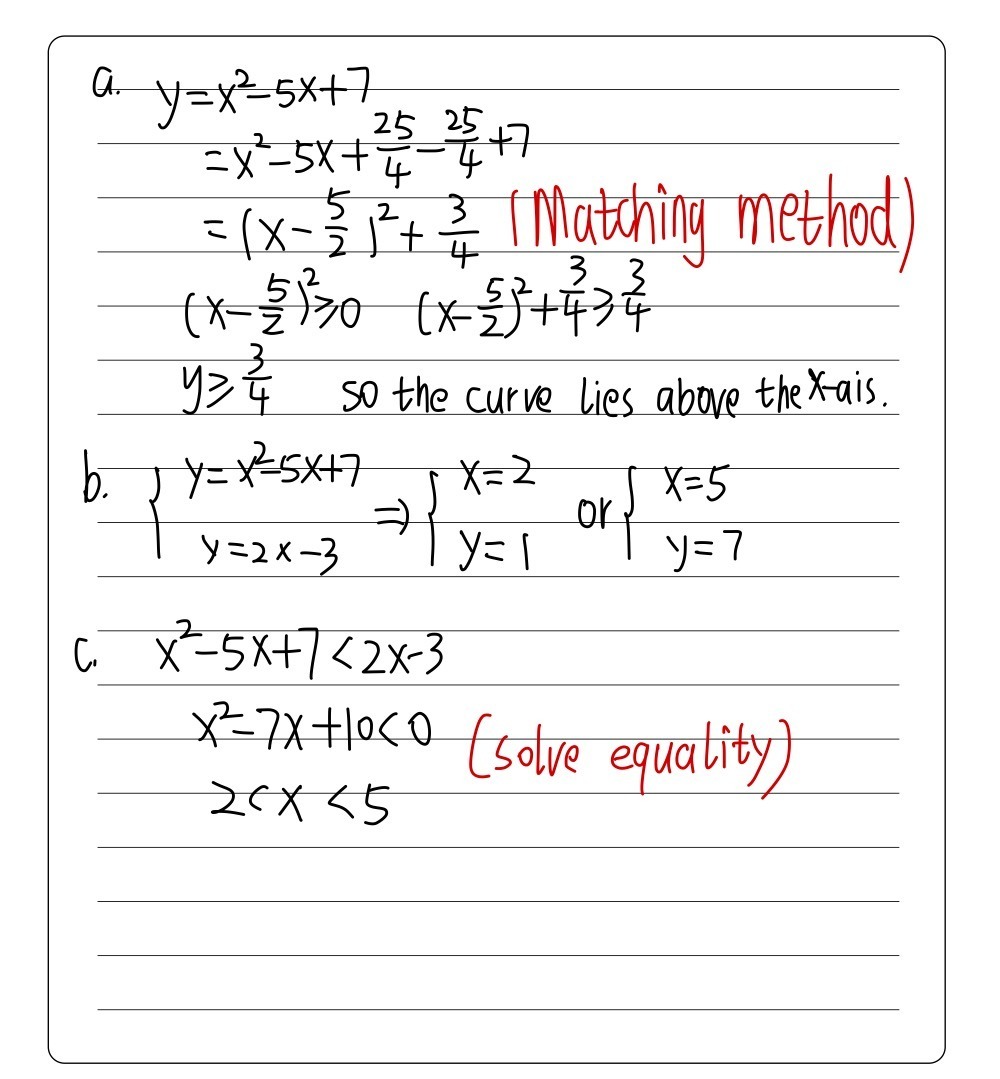 a. y=x²-5x+7
=x²-5x+25/4-25/4+7
=(x-5/2)²+3/4 (Matching method)
(x-5/2)²≥0 (x-5/2)²+3/4≥3/4
y≥3/4 so the curve lies above the x-ais.
b. { y=x²-5x+7 ⇒ { x=2 or { x=5
y=2x-3 y=1 y=7
c. x²-5x+7<2x-3
x²-7x+10<0 (solve equality)
2<x<5